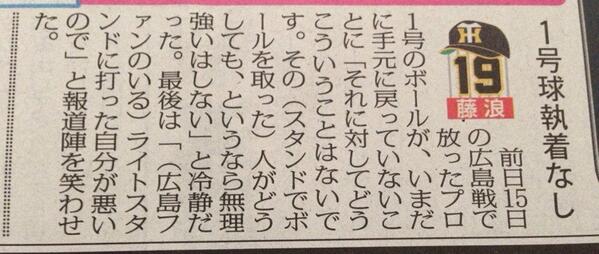 1号球執着なし
19
藤浪
前日15日
の広島戦で
放ったプロ
1号のボールが、いまだ
に手元に戻っていないこ
とに「それに対してどう
こういうことはないで
す。その(スタンドでボ
ールを取った)人がどう
しても、というなら無理
強いはしない」と冷静だ
った。最後は「(広島フ
ァンのいる)ライトスタ
ンドに打った自分が悪い
ので」と報道陣を笑わせ
た。